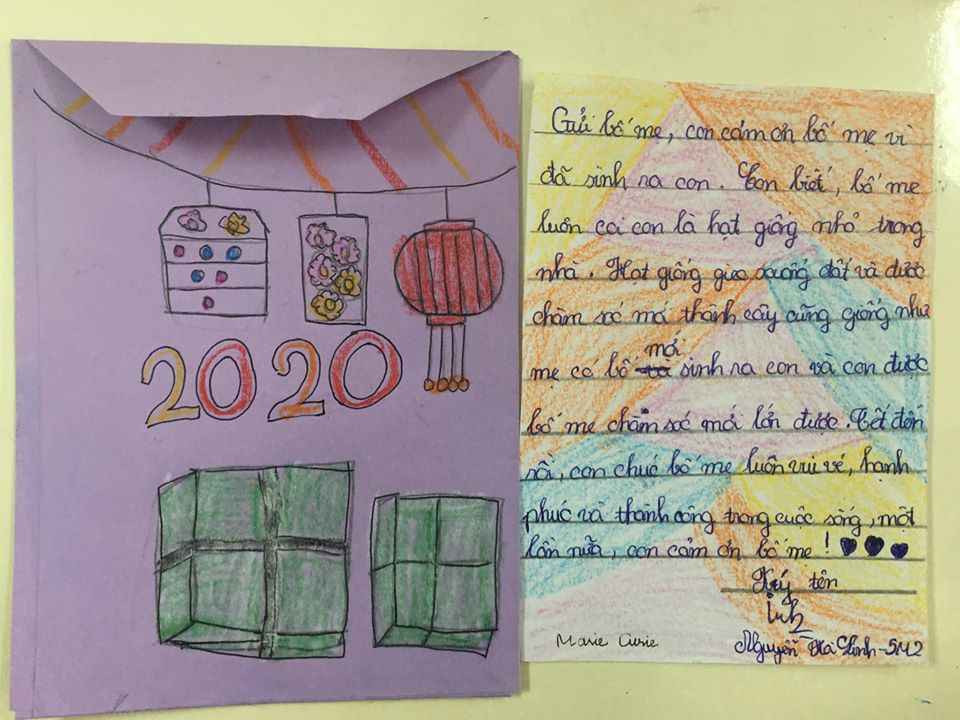 2020
Gửi bố mẹ, con cảm ơn bố mẹ vì
đã sinh ra con. Con biết, bố mẹ
luôn coi con là hạt giống nhỏ trong
nhà. Hạt giống gieo xuống đất và được
chăm sóc mới thành cây cũng giống như
mẹ có bố mới sinh ra con và con được
bố mẹ chăm sóc mới lớn được. Tết đến
rồi, con chúc bố mẹ luôn vui vẻ, hạnh
phúc và thành công trong cuộc sống, một
lần nữa, con cảm ơn bố mẹ!
Ký tên
Marie Curie
Nguyễn Hà Linh - 5M2